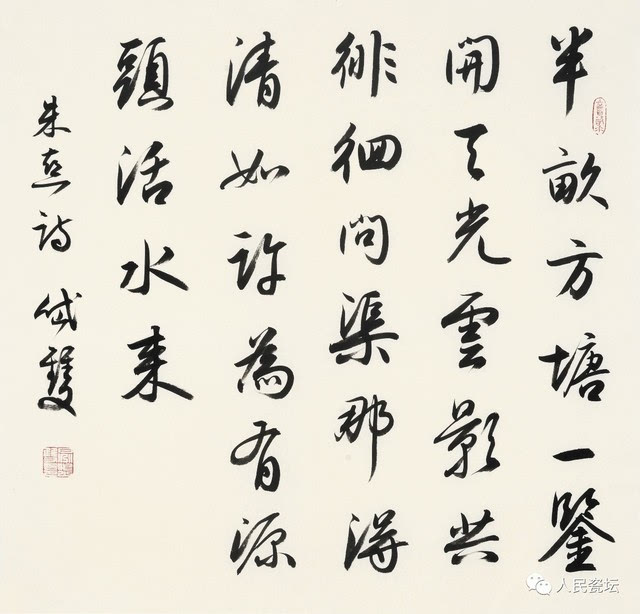 半畝方塘一鑒
開天光雲影共
徘徊問渠那得
清如許為有源
頭活水來
朱熹詩
人民瓷坛